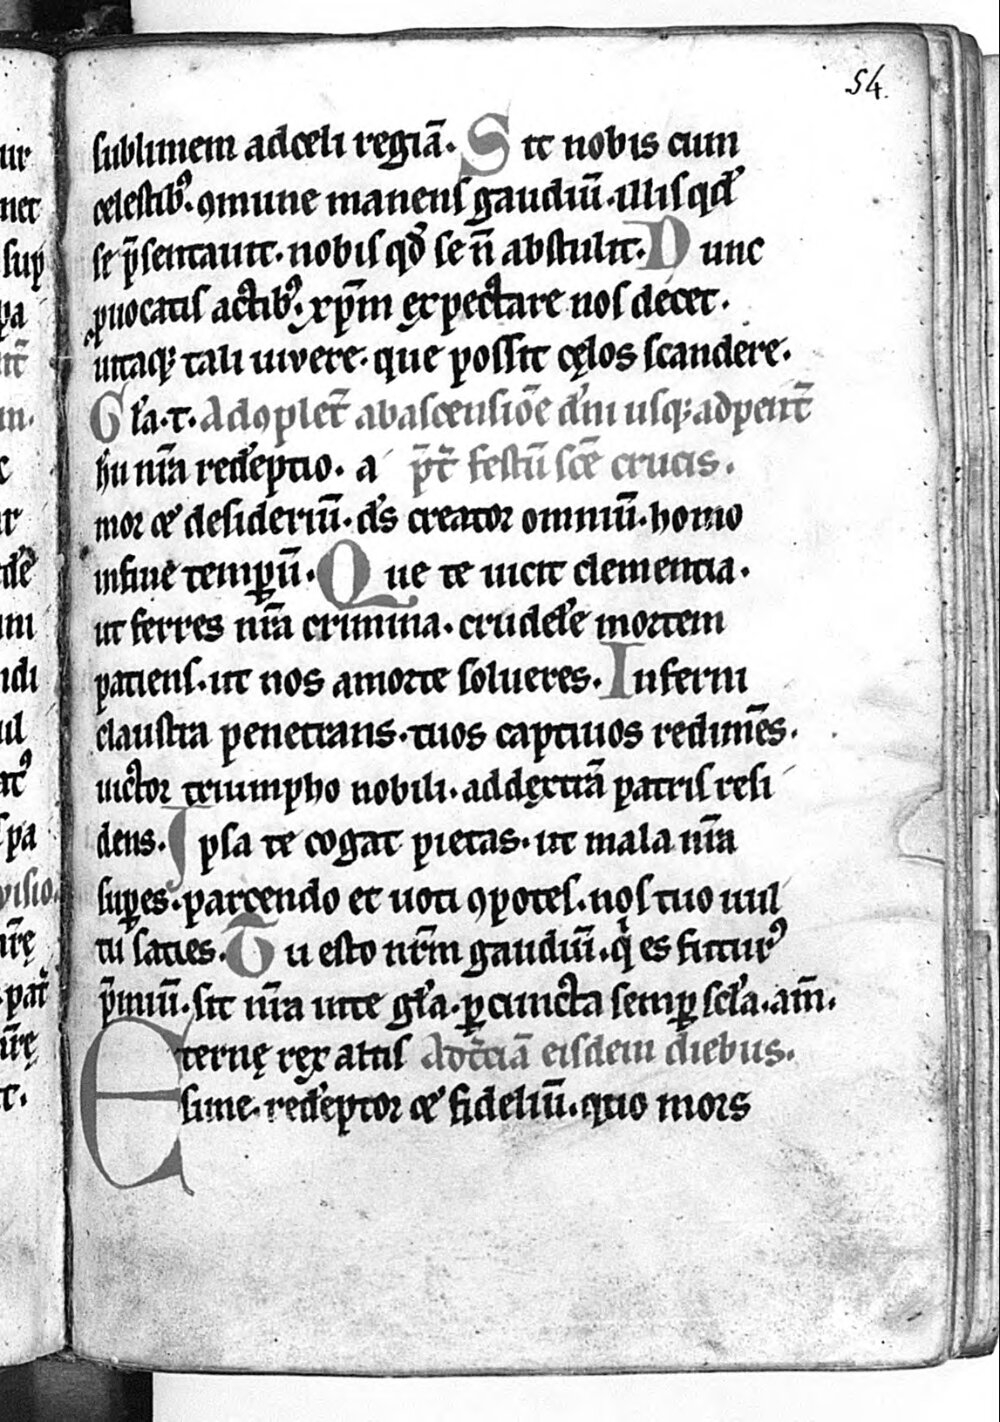 54.
sublimem ad celi regiā. Sit nobis cum
celestib⁹ ꝯmune manens gaudiū. illis qď
se p̄sentauit. nobis qđ se n̄ abstulit. Nunc
ꝓuocatis actib⁹. xp̄m expectare nos decet.
uitaq; tali uivere. que possit cęlos scandere.
Gl̄a. t. Ad oplet̄ ab ascensiōe dn̄i usq; ad pent̄
Ihu nr̄a redēptio. a p̄t̄ festū sc̄e crucis.
mor & desideriū. ds̄ creator omniū. homo
in fine temꝑū. Que te uicit clementia.
ut ferres nr̄a crimina. crudelē mortem
patiens. ut nos a morte solueres. Inferni
claustra penetrans. tuos captiuos redimēs.
uictor triumpho nobili. ad dextrā patris resi
dens. Ipsa te cogat pietas. ut mala nr̄a
suꝑes. parcendo et uoti ꝯpotes. nos tuo uul
tu saties. Tu esto nr̄m gaudiū. q̇ es futur⁹
p̄miū. sit nr̄a in te gl̄a. ꝑ cuncta semꝑ scl̄a. am̄.
Eternę rex altis Ad t̄ciā eisdem diebus.
sime. redēptor & fideliū. quo mors